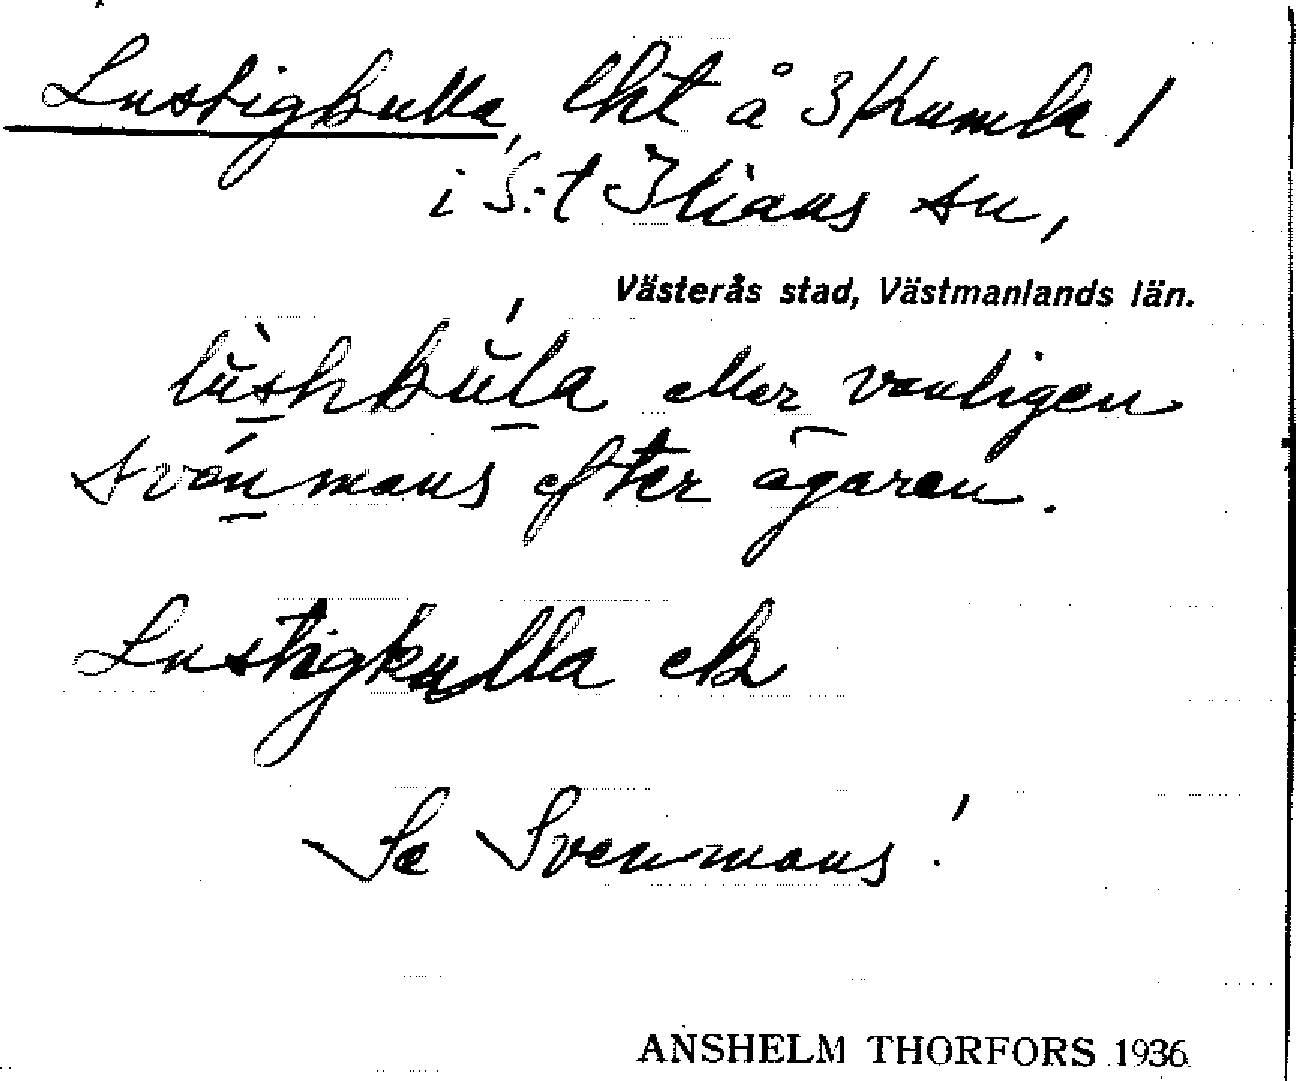 Lustigkulla, lht å 3 Kumla /
i S:t Ilians sn,
Västerås stad, Västmanlands län.
lùshkúla eller vanligen
svénmans efter ägaren.
Lustigkulla ek
Se Svenmans!
ANSHELM THORFORS 1936